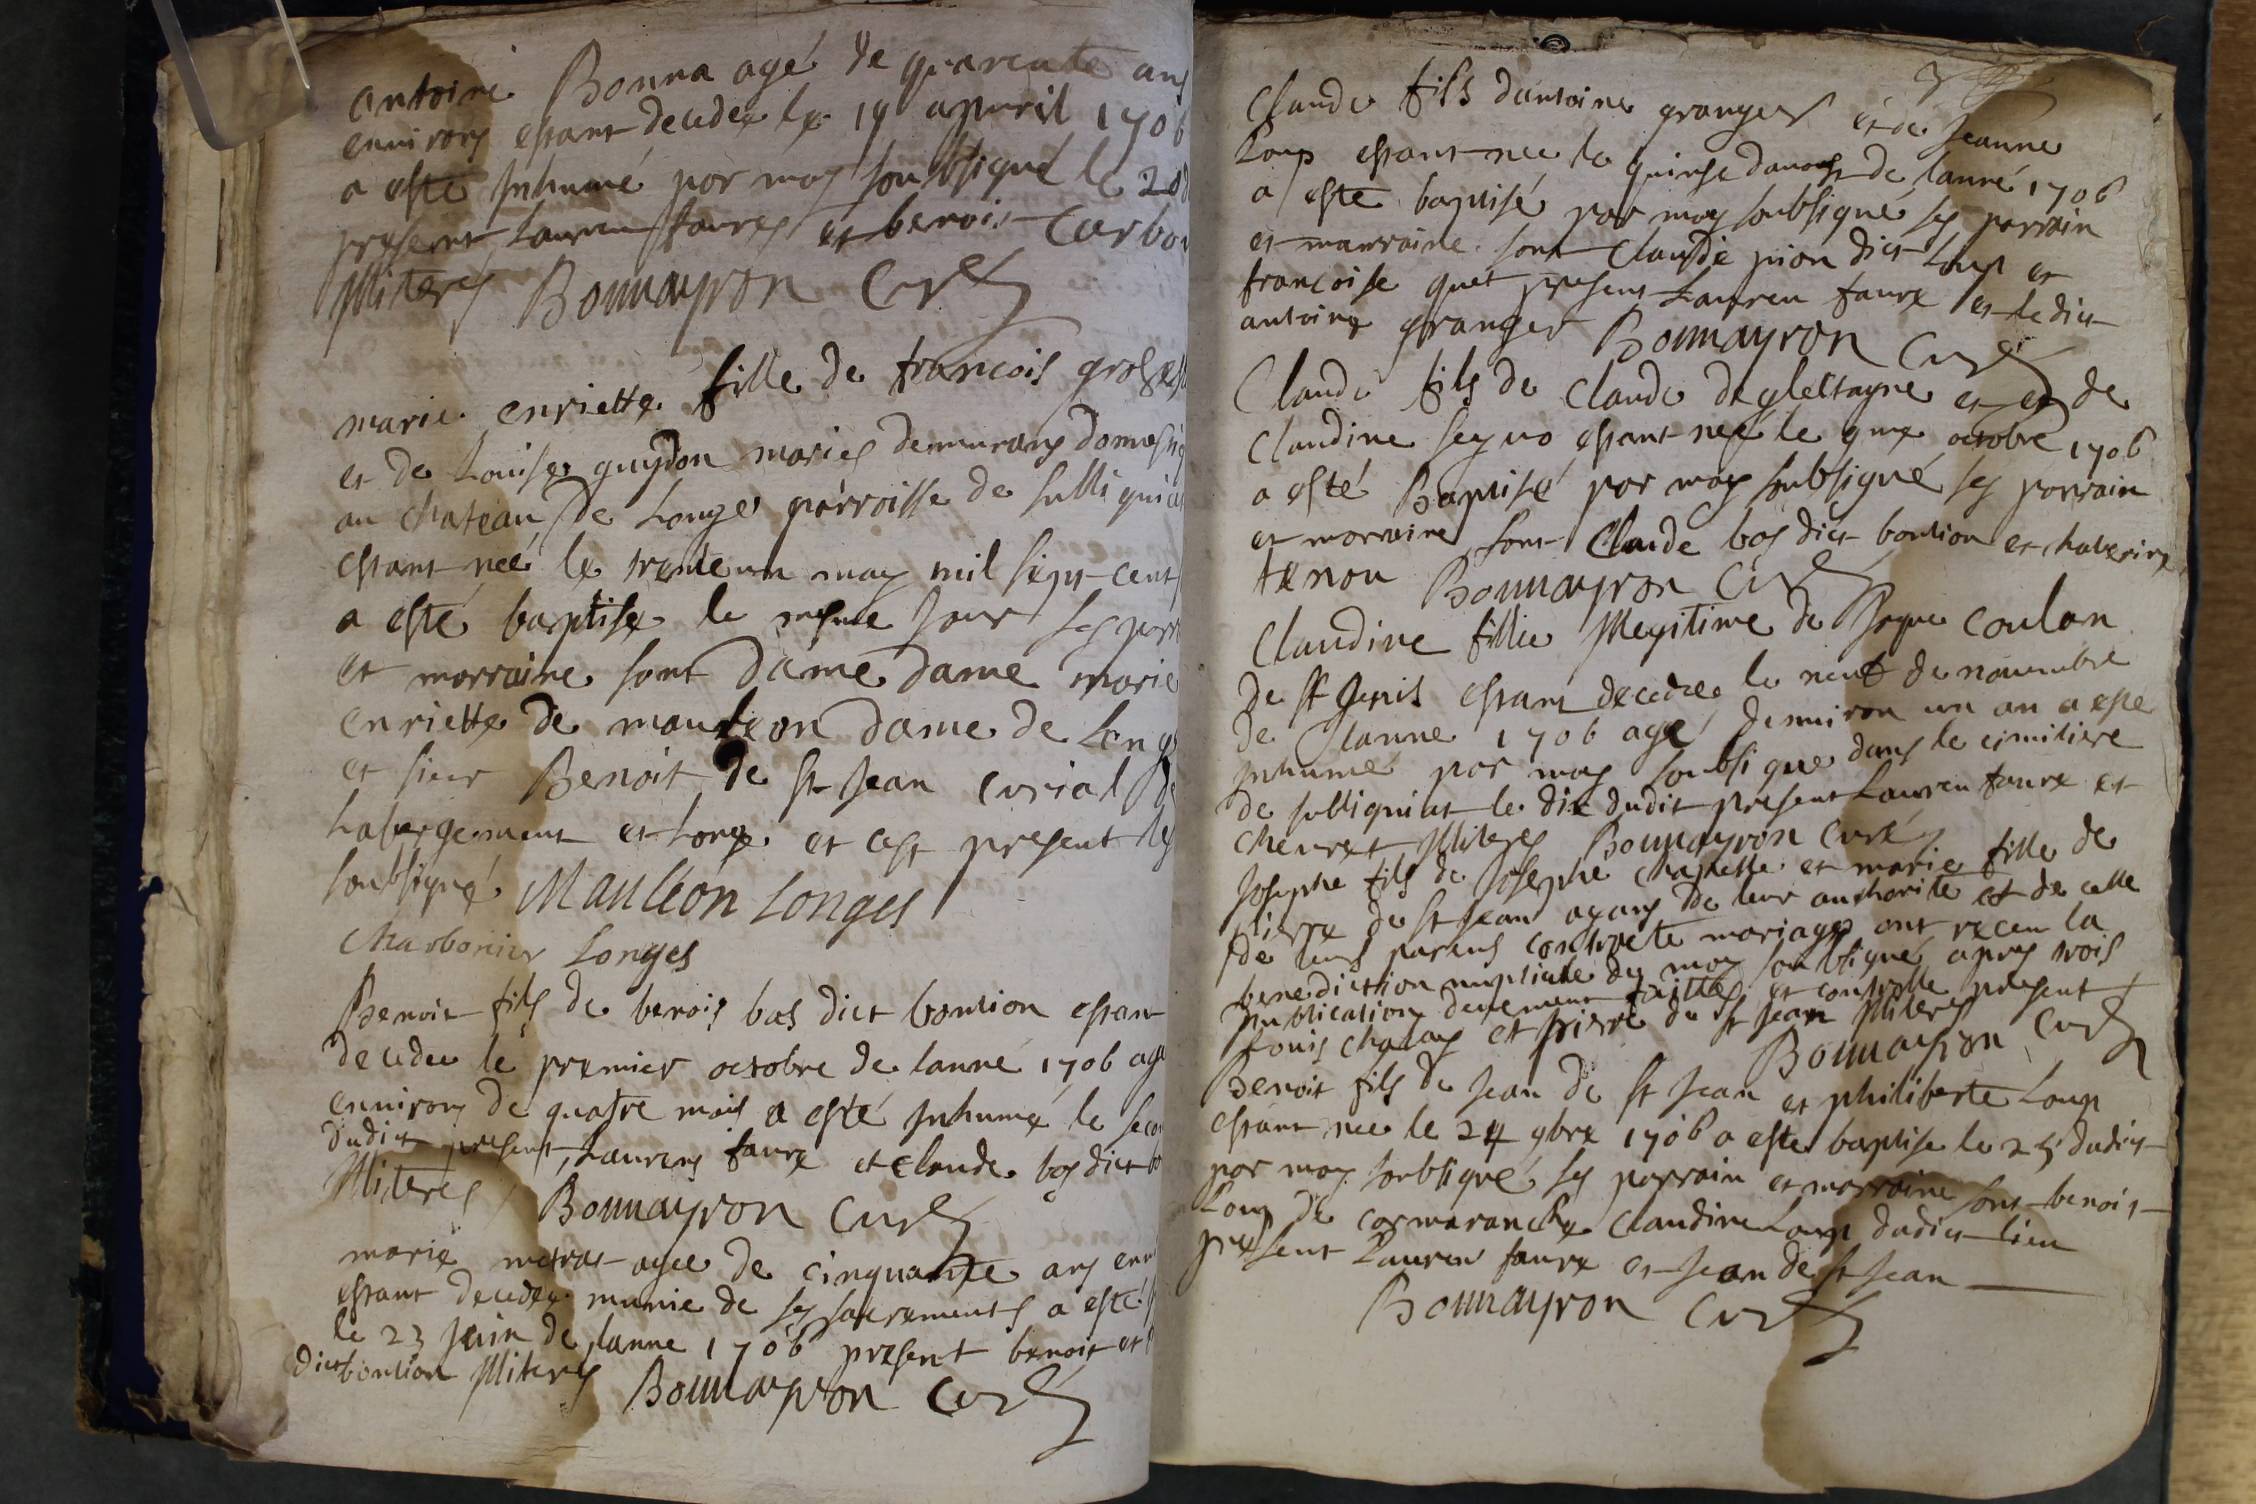 antoine Bonna agé de quarente ans
environs estant decedee le 19 apvril 1706
a esté Inhumé par moy soubsigné le 20
present Lauren faure et benoit Carbon
Illiterés Bonnayron Curé
marie enriette fille de francois
et de Louise guydon mariés demurans
au chateau de Longe parroisse de sulligniat
estant née le trenteun may mil sept cent
a esté baptisé le mesme Jour ses parr
et marraine sont dame dame marie
enriette de mauleon dame de Longe
et sieur Benoit de st Jean curial
habergement et longe et cest present les
soubsigné Mauleon Longes
Charbonier Longes
Benoit fils de benois bas dict boulion estant
decedee le premier octobre de lanné 1706 age
environs de quatre mois a esté Inhumé le secon
dudict present, Laurens faure et claude bas dict bo
Illiteres Bonnayron Curé
marie metras agee de cinquante ans envi
estant decedee munie de ses sacrements a esté
le 23 Juin de lanne 1706 present benoit et
dict boulion Illiteres Bonnayron Curé
Claude fils dantoine granger et de Jeanne
Loup estant nee le quinse daoust de lanné 1706
a esté baptisé par moy soubsigné ses parrain
et marraine sont Claude pion dict Loup et
francoise quet present Lauren faure et ledict
antoine granger Bonnayron Curé
Claude fils de Claude degletagne et de
Claudine estant neé le onze octobre 1706
a esté Baptisé par moy soubsigné ses parrain
et marraine sont Claude bas dict boulion et
tenou Bonnayron Curé
Claudine fillie Illegitime de Jaque Coulon
de st Jenis estant decedee le neuf de novembre
de lanne 1706 agé denviron un an a esté
Inhumé par moy soubsigne dans le cimitiere
de sulligniat le dix dudit present Lauren faure et
chevret Illiteres Bonnayron Curé
Josephe fils de Josephe Chapelle et marie fille de
pierre de st Jean ayans de leur authorité et de celle
de leurs parens contracté mariage ont receu la
benediction nuptiale de moy soubsigné apres trois
publication deuement faittes et controlle present
Louis chalay et pierre de st Jean Illiteres
Bonnayron Curé
Benoit fils de Jean de st Jean et philiberte Loup
estant nee le 24 9bre 1706 a este baptise le 25 dudict
par moy soubsigné ses parrain et marraine sont benoit
Loup de cormaranche Claudine Loup dudict lieu
present Lauren faure et Jean de st Jean
Bonnayron Curé